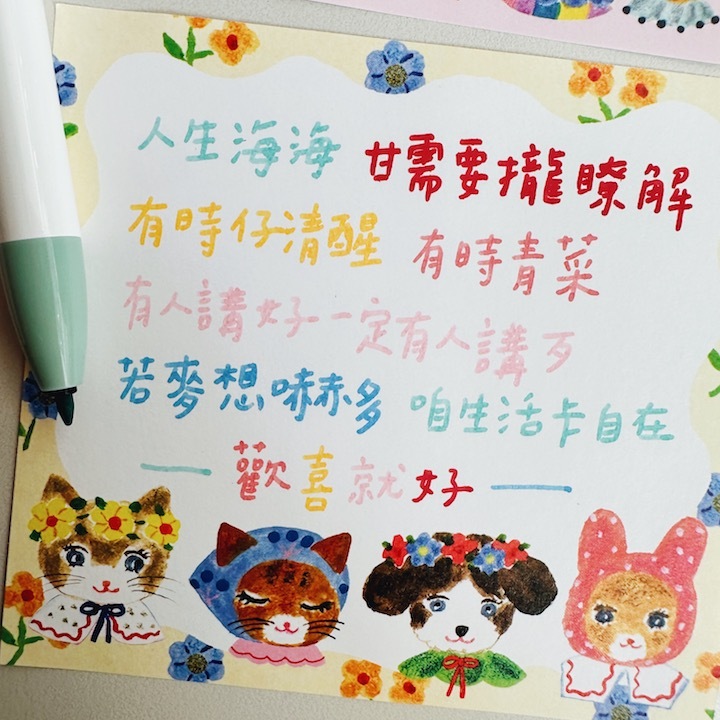 人生海海 甘需要攏瞭解
有時仔清醒 有時青菜
有人講好一定有人講歹
若麥想嚇赫多 咱生活卡自在
— 歡喜就好 —